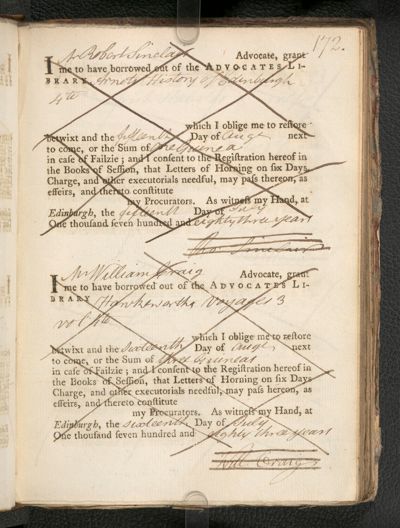 172.
I Mr Robert Sinclair Advocate, grant
me to have borrowed out of the ADVOCATES LI-
BRARY Arnots History of Edinburgh
4to
which I oblige me to reſtore
betwixt and the fifteenth Day of Augt next
to come, or the Sum of One Guinea
in caſe of Failzie; and I conſent to the Regiſtration hereof in
the Books of Seſſion, that Letters of Horning on ſix Days
Charge, and other executorials needful, may paſs thereon, as
effeirs, and thereto conſtitute
my Procurators. As witneſs my Hand, at
Edinburgh, the fifteenth Day of July
One thouſand ſeven hundred and eighty three years
Ro: Sinclair
I Mr William Craig Advocate, grant
me to have borrowed out of the ADVOCATES LI-
BRARY Hawkesworths Voyages 3
vol 4to
which I oblige me to reſtore
betwixt and the sixteenth Day of Augt next
to come, or the Sum of three Guineas
in caſe of Failzie; and I conſent to the Regiſtration hereof in
the Books of Seſſion, that Letters of Horning on ſix Days
Charge, and other executorials needful, may paſs hereon, as
effeirs, and thereto conſtitute
my Procurators. As witneſs my Hand, at
Edinburgh, the sixteenth Day of July
One thouſand ſeven hundred and eighty three years
Will Craig